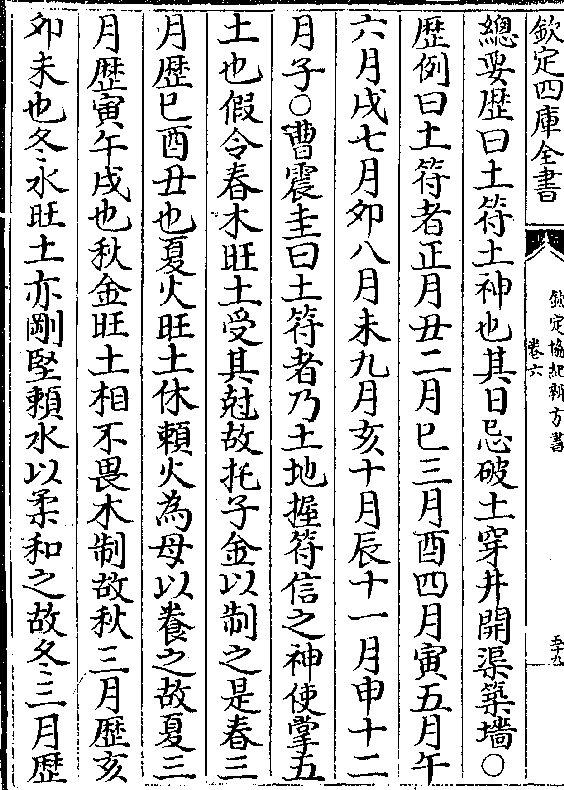 欽定四庫全書
欽定協紀辨方書
卷六
五十九
總要歴曰土符土神也其日忌破土穿井開渠築墻○
歴例曰土符者正月丑二月巳三月酉四月寅五月午
六月戌七月卯八月未九月亥十月辰十一月申十二
月子○曹震圭曰土符者乃土地握符信之神使掌五
土也假令春木旺土受其尅故托子金以制之是春三
月歴巳酉丑也夏火旺土休賴火為母以養之故夏三
月歴寅午戌也秋金旺土相不畏木制故秋三月歴亥
卯未也冬水旺土亦剛堅賴水以柔和之故冬三月歴